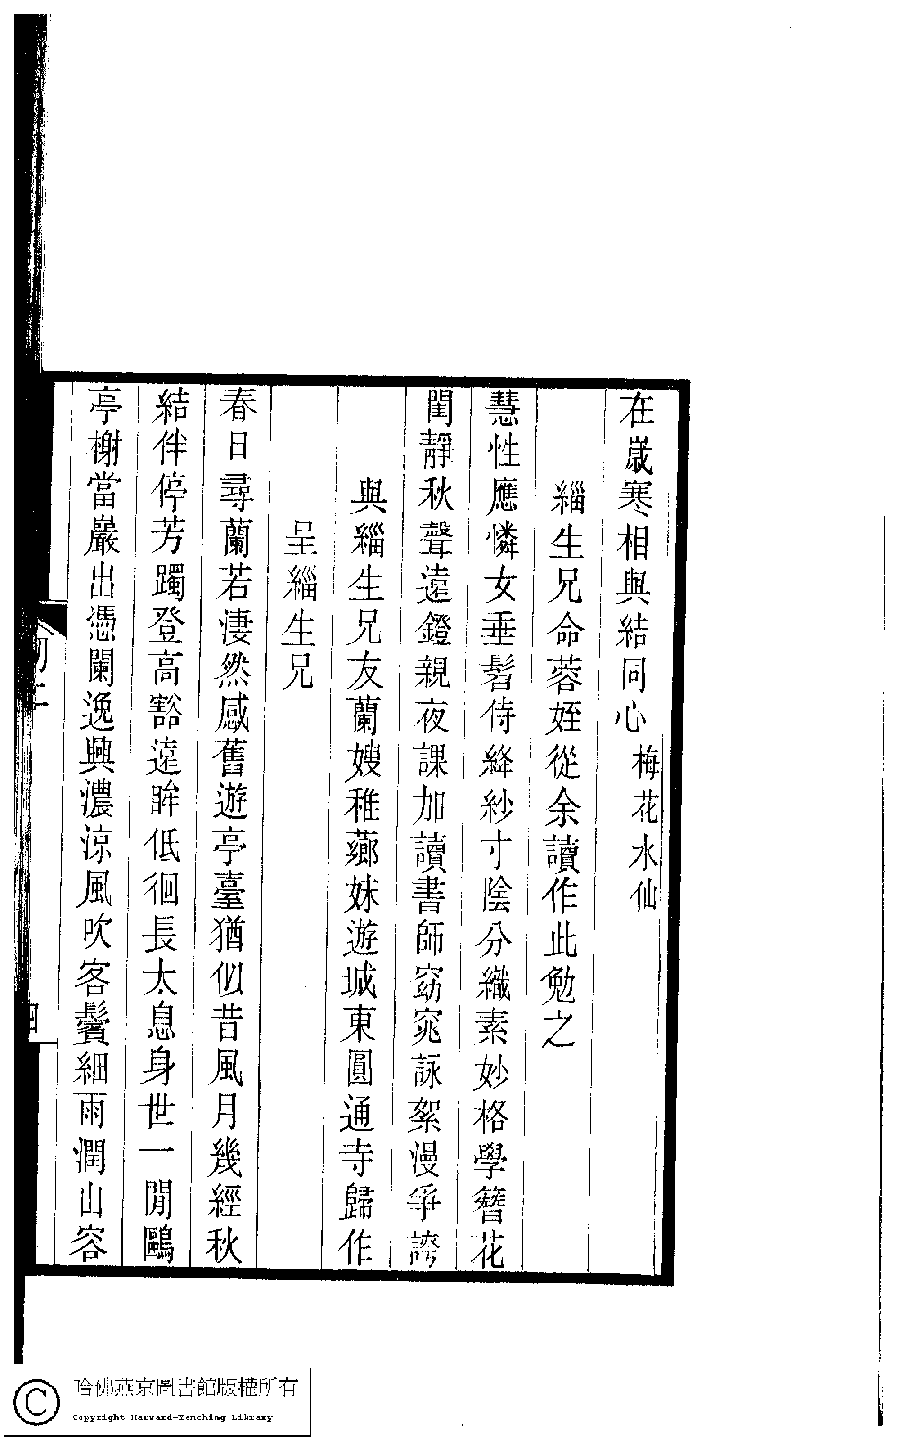 在歲寒相與結同心 梅花水仙
緇生兄命蓉姪從余讀作此勉之
慧性應憐女垂髫侍絳紗寸陰分織素妙格學簪花
閨靜秋聲遠鐙親夜課加讀書師窈窕詠絮漫爭誇
與緇生兄友蘭嫂稚薌妹遊城東圓通寺歸作
呈緇生兄
春日尋蘭若淒然感舊遊亭臺猶似昔風月幾經秋
結伴停芳躅登高豁遠眸低徊長太息身世一閒鷗
亭榭當巖出憑闌逸興濃涼風吹客鬢細雨潤山容
哈佛燕京圖書館版權所有
Copyright Harvard-Yenching Library